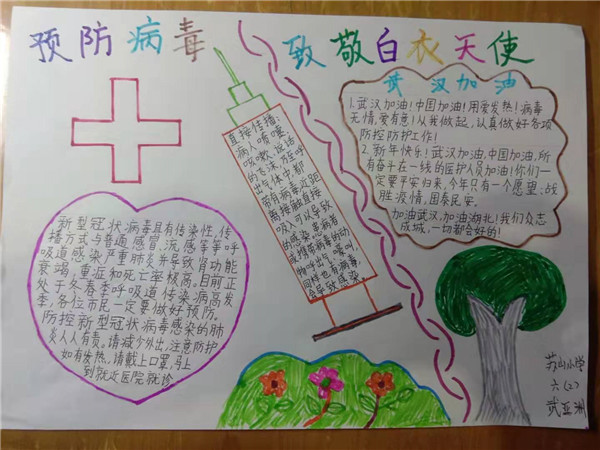 预防病毒
致敬白衣天使
武汉加油
1.武汉加油!中国加油!用爱发热!病毒
无情,爱有意!从我做起,认真做好各项
防控防护工作!
2.新年快乐!武汉加油,中国加油,所
有奋斗在一线的医护人员加油!你们一
定要平安归来,今年只有一个愿望:战
胜疫情,国泰民安。
加油武汉,加油湖北!我们众志
成城,一切都会好的!
直接传播:
病人喷嚏、
咳嗽、说话
的飞沫,乃至呼
出气体中,都
带有病毒,近距
离接触直接
吸入,可以导致
的感染。患病者
或携带病毒的动
物呼出与喷叫,
同样也有病毒,
会导致感染。
新型冠状病毒具有传染性,传
播方式与普通感冒、流感等等呼
吸道感染严重肺炎并导致肾功能
衰竭,重症和死亡率极高。目前正
处于冬春季呼吸道传染病高发
季,各位市民一定要做好预防。
防控新型冠状病毒感染的肺
炎人人有责。请减少外出,注意防护
如有发热,请戴上口罩,马上
到就近医院就诊
苏山小学
六(2)
武亚洲